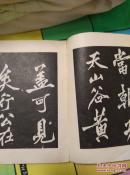 當朝
天山谷黄
盖可見
矣行公在